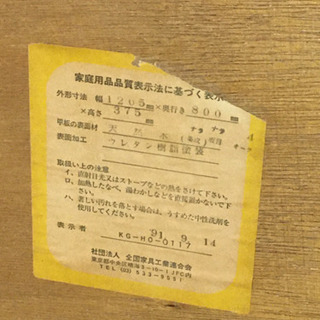 家庭用品品質表示法に基づく表示
外形寸法 幅 1205 mm×奥行き 800 mm
×高さ 375 mm
甲板の表面材 天然木
表面加工 ウレタン樹脂塗装
取扱い上の注意
イ、直射日光又はストーブなどの熱をさけて下さい。
ロ、加熱したなべ、湯わかしなどを直接置かないで下さい。
ハ、著しい汚れを落とす場合は、うすめた中性洗剤を
使用してください。
表示者 '91. 9. 14
KG-HO-0117
社団法人 全国家具工業連合会